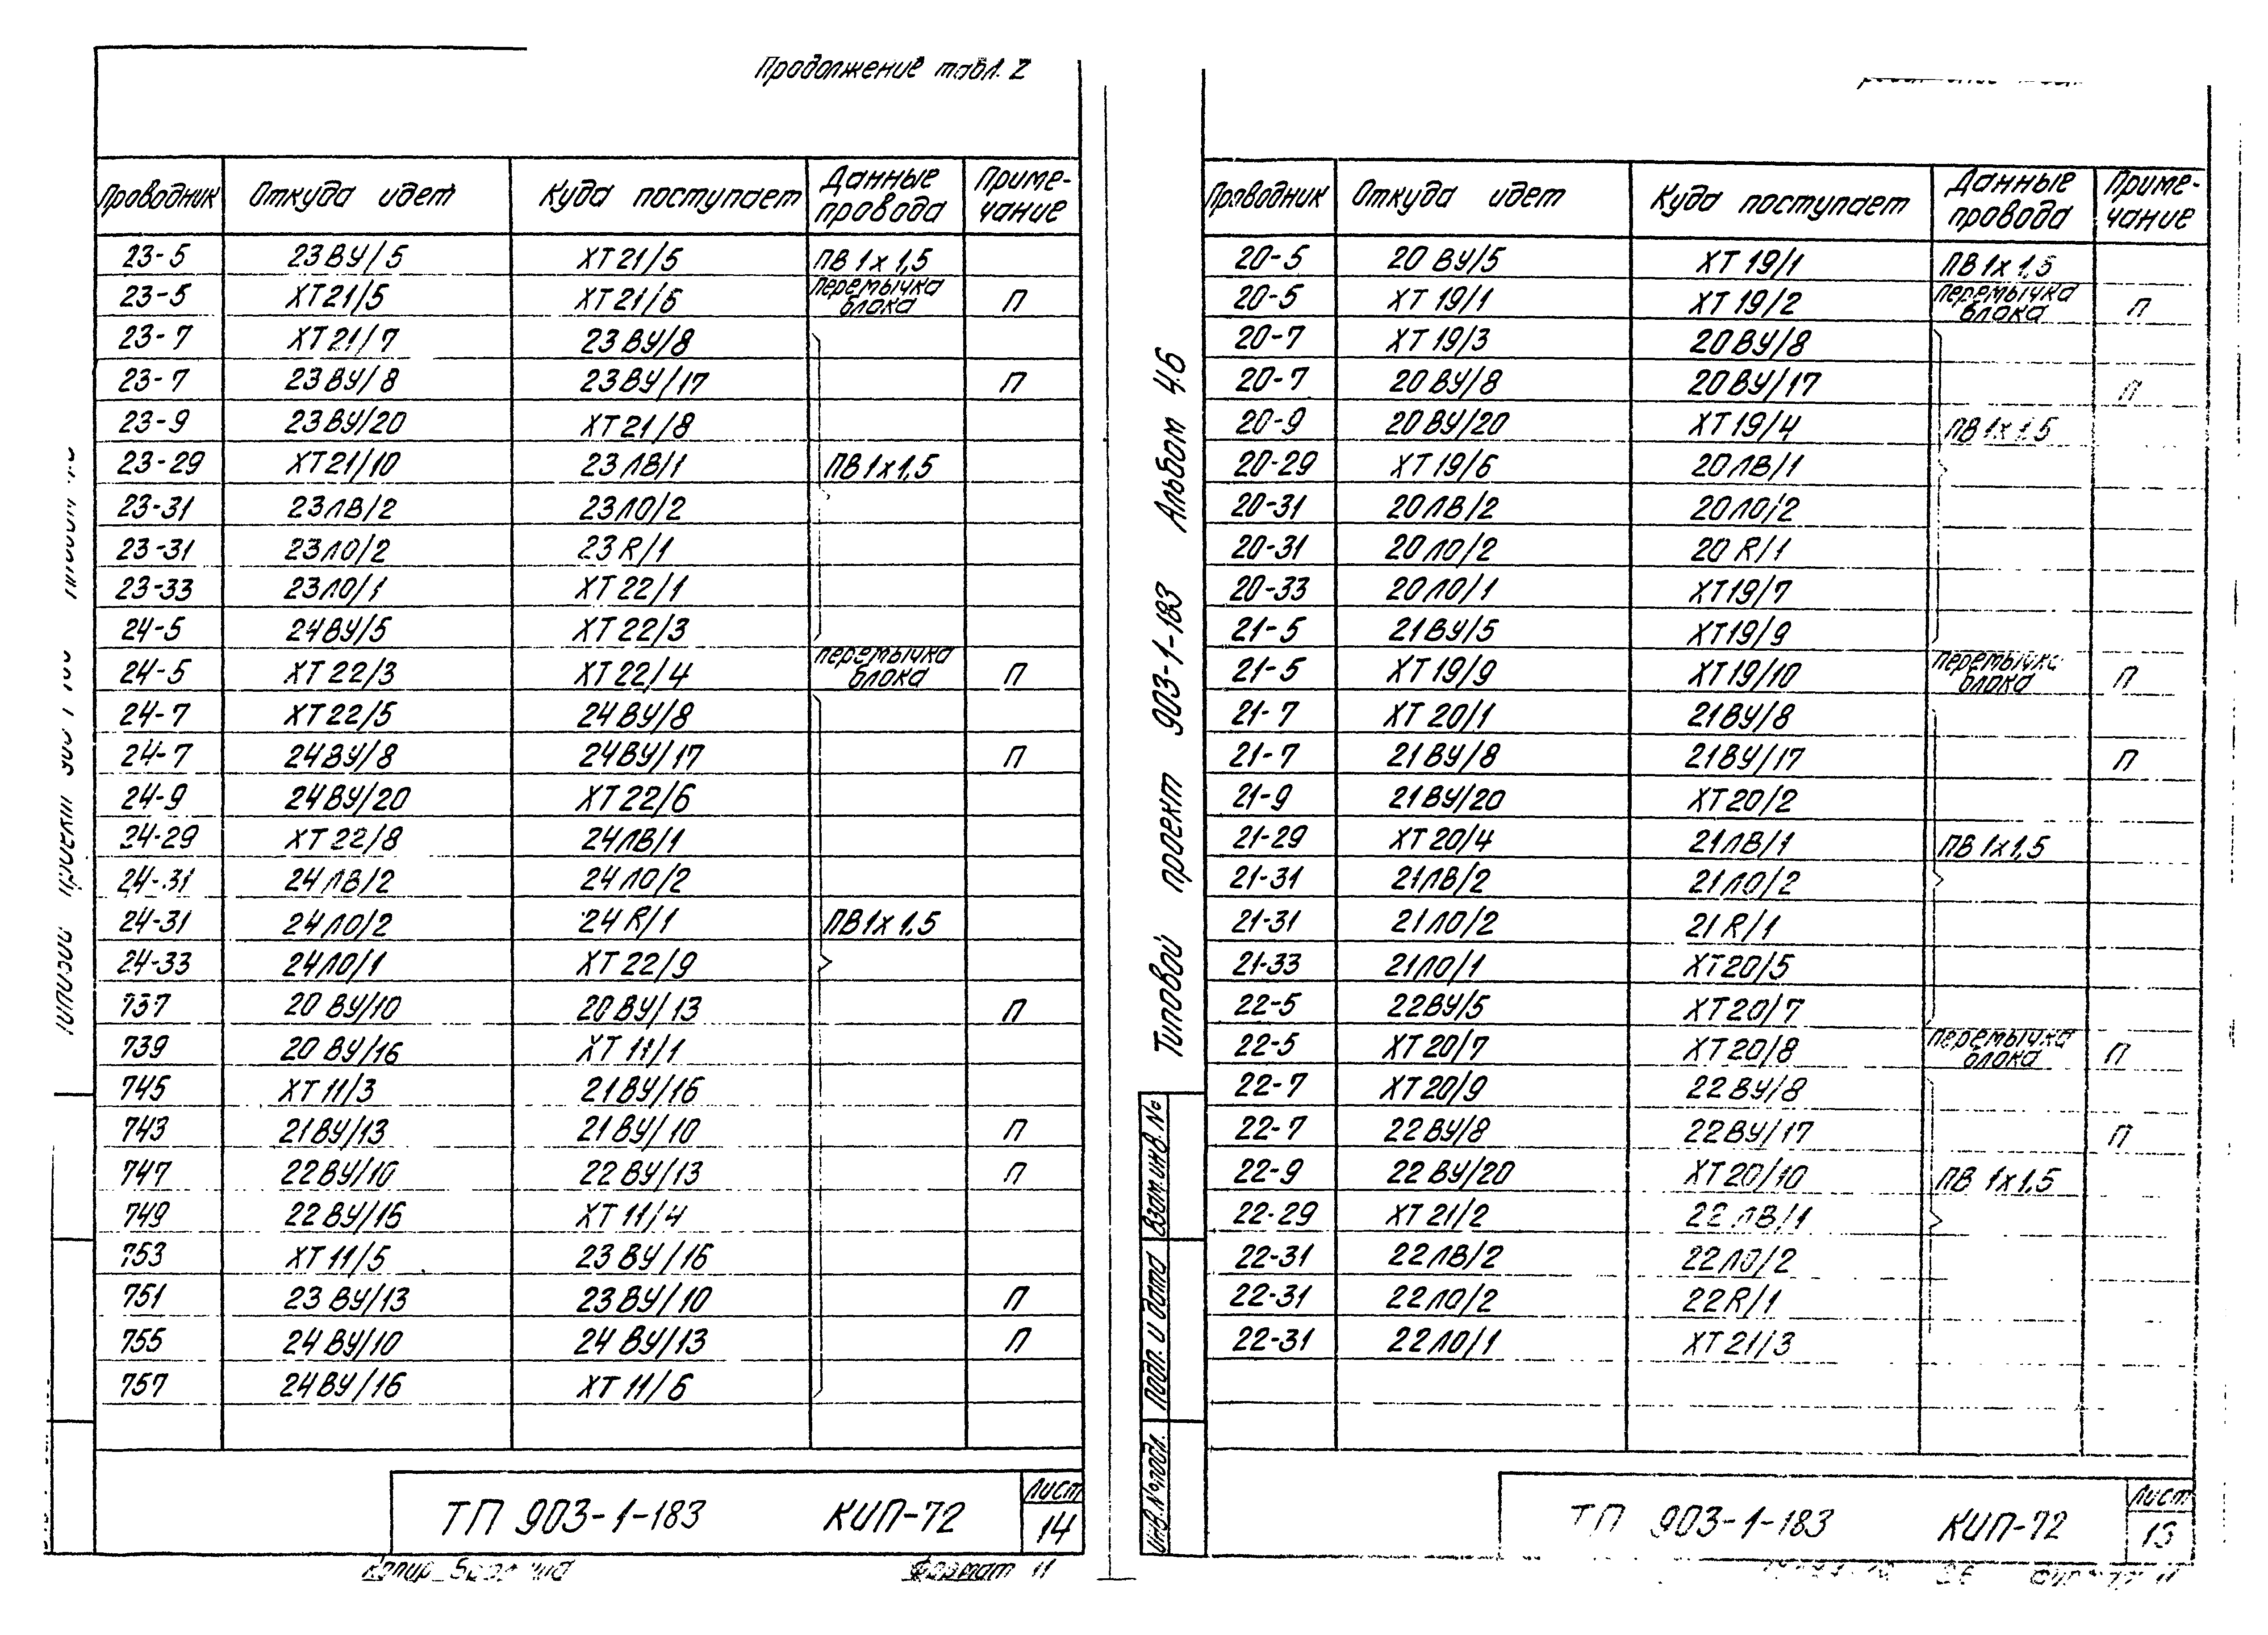 Продолжение табл. 2
Проводник | Откуда идет | Куда поступает | Данные провода | Приме-чание
23-5 | 23ВУ/5 | ХТ21/5 | ПВ 1х1,5
23-5 | ХТ21/5 | ХТ21/6 | перемычка блока | П
23-7 | ХТ21/7 | 23ВУ/8
23-7 | 23ВУ/8 | 23ВУ/17 | П
23-9 | 23ВУ/20 | ХТ21/8
23-29 | ХТ21/10 | 23ЛВ/1 | ПВ1х1,5
23-31 | 23ЛВ/2 | 23ЛО/2
23-31 | 23ЛО/2 | 23R/1
23-33 | 23ЛО/1 | ХТ22/1
24-5 | 24ВУ/5 | ХТ22/3
24-5 | ХТ22/3 | ХТ22/4 | перемычка блока | П
24-7 | ХТ22/5 | 24ВУ/8
24-7 | 24ВУ/8 | 24ВУ/17 | П
24-9 | 24ВУ/20 | ХТ22/6
24-29 | ХТ22/8 | 24ЛВ/1
24-31 | 24ЛВ/2 | 24ЛО/2
24-31 | 24ЛО/2 | 24R/1 | ПВ1х1,5
24-33 | 24ЛО/1 | ХТ22/9
737 | 20ВУ/10 | 20ВУ/13 | П
739 | 20ВУ/16 | ХТ11/1
745 | ХТ11/3 | 21ВУ/16
743 | 21ВУ/13 | 21ВУ/10 | П
747 | 22ВУ/10 | 22ВУ/13 | П
749 | 22ВУ/16 | ХТ11/4
753 | ХТ11/5 | 23ВУ/16
751 | 23ВУ/13 | 23ВУ/10 | П
755 | 24ВУ/10 | 24ВУ/13 | П
757 | 24ВУ/16 | ХТ11/6
ТП 903-1-183 КИП-72
Лист
14
Формат 11
Типовой проект 903-1-183 Альбом 4.6
Проводник | Откуда идет | Куда поступает | Данные провода | Приме-чание
20-5 | 20ВУ/5 | ХТ19/1 | ПВ1х1,5
20-5 | ХТ19/1 | ХТ19/2 | перемычка блока | П
20-7 | ХТ19/3 | 20ВУ/8
20-7 | 20ВУ/8 | 20ВУ/17 | П
20-9 | 20ВУ/20 | ХТ19/4 | ПВ1х1,5
20-29 | ХТ19/6 | 20ЛВ/1
20-31 | 20ЛВ/2 | 20ЛО/2
20-31 | 20ЛО/2 | 20R/1
20-33 | 20ЛО/1 | ХТ19/7
21-5 | 21ВУ/5 | ХТ19/9
21-5 | ХТ19/9 | ХТ19/10 | перемычка блока | П
21-7 | ХТ20/1 | 21ВУ/8
21-7 | 21ВУ/8 | 21ВУ/17 | П
21-9 | 21ВУ/20 | ХТ20/2
21-29 | ХТ20/4 | 21ЛВ/1 | ПВ1х1,5
21-31 | 21ЛВ/2 | 21ЛО/2
21-31 | 21ЛО/2 | 21R/1
21-33 | 21ЛО/1 | ХТ20/5
22-5 | 22ВУ/5 | ХТ20/7
22-5 | ХТ20/7 | ХТ20/8 | перемычка блока | П
22-7 | ХТ20/9 | 22ВУ/8
22-7 | 22ВУ/8 | 22ВУ/17 | П
22-9 | 22ВУ/20 | ХТ20/10 | ПВ 1х1,5
22-29 | ХТ21/2 | 22ЛВ/1
22-31 | 22ЛВ/2 | 22ЛО/2
22-31 | 22ЛО/2 | 22R/1
22-31 | 22ЛО/1 | ХТ21/3
Взам.инв.№
Подп. и дата
Инв.№подл.
ТП 903-1-183 КИП-72
Лист
13